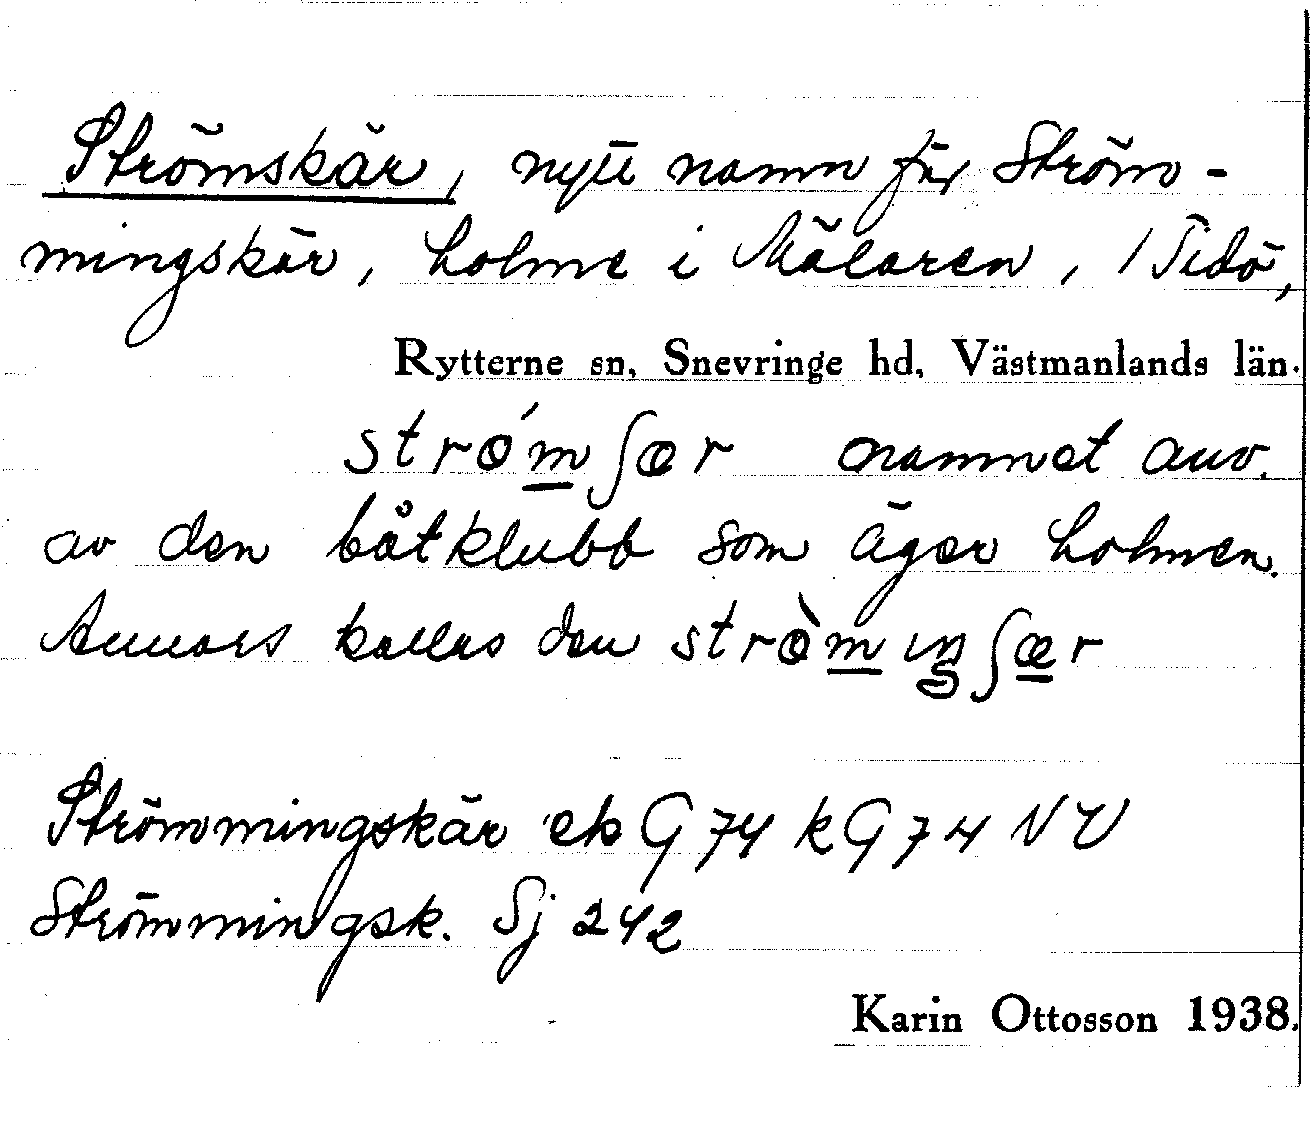 Strömskär, nytt namn för Ström-
mingskär, holme i Mälaren, / Tidö,
Rytterne sn, Snevringe hd, Västmanlands län.
strǿmʃær namnet anv.
av den båtklubb som äger holmen.
Annars kallas den strø̀mıŋʃær
Strömmingskär ek G 74 k G 74 NV
Strömmingsk. Sj 242
Karin Ottosson 1938.